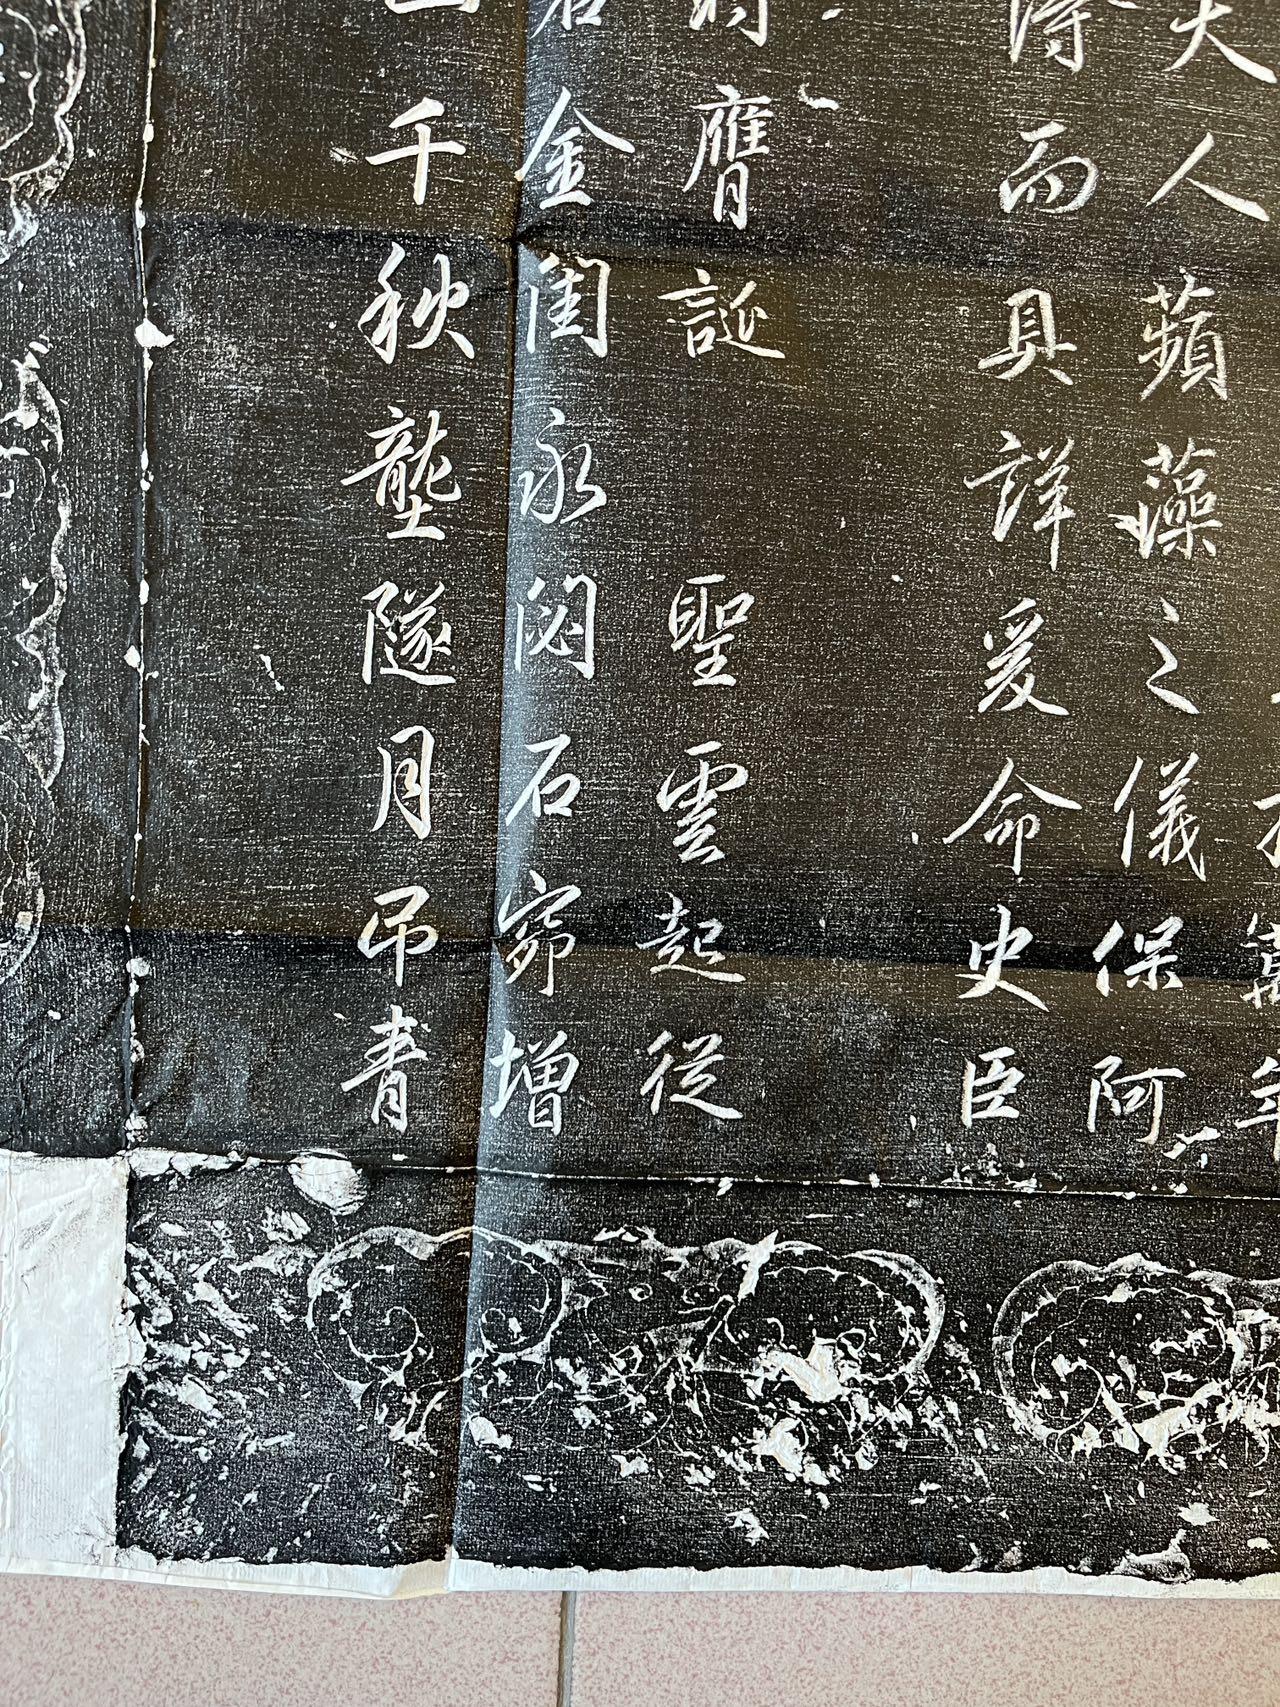 萬年
大人蘋藻之儀保阿
得而具詳爰命史臣
膺誕 聖雲起從
金閨永閟石窌增
千秋壟隧月吊青